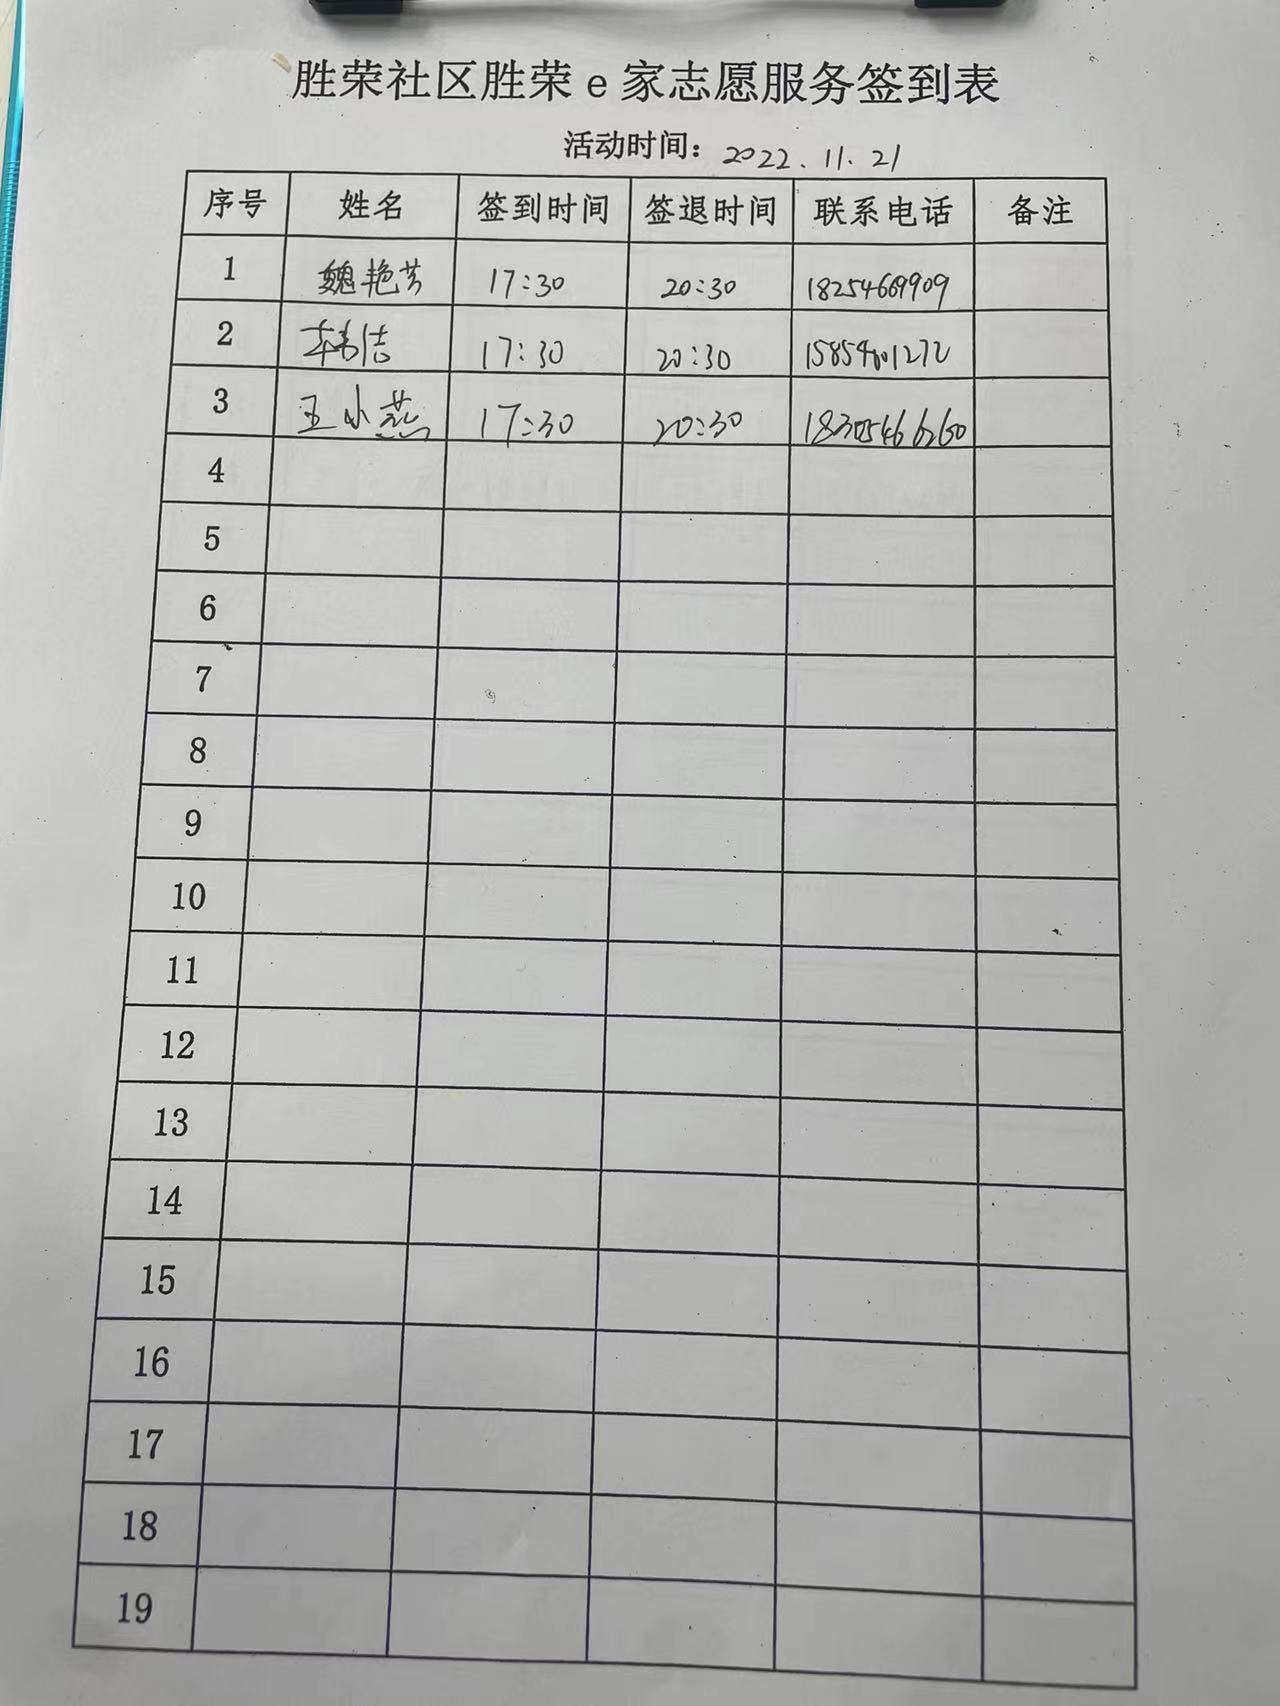 胜荣社区胜荣e家志愿服务签到表
活动时间：2022.11.21
序号 姓名 签到时间 签退时间 联系电话 备注
1 魏艳芳 17:30 20:30 18254669909
2 17:30 20:30 15854601272
3 王小燕 17:30 20:30 18305466260
4
5
6
7
8
9
10
11
12
13
14
15
16
17
18
19